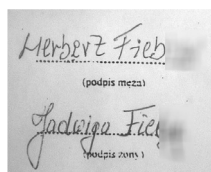 Herbert Fieb
(podpis męża)
Jadwiga Fieb
(podpis żony)